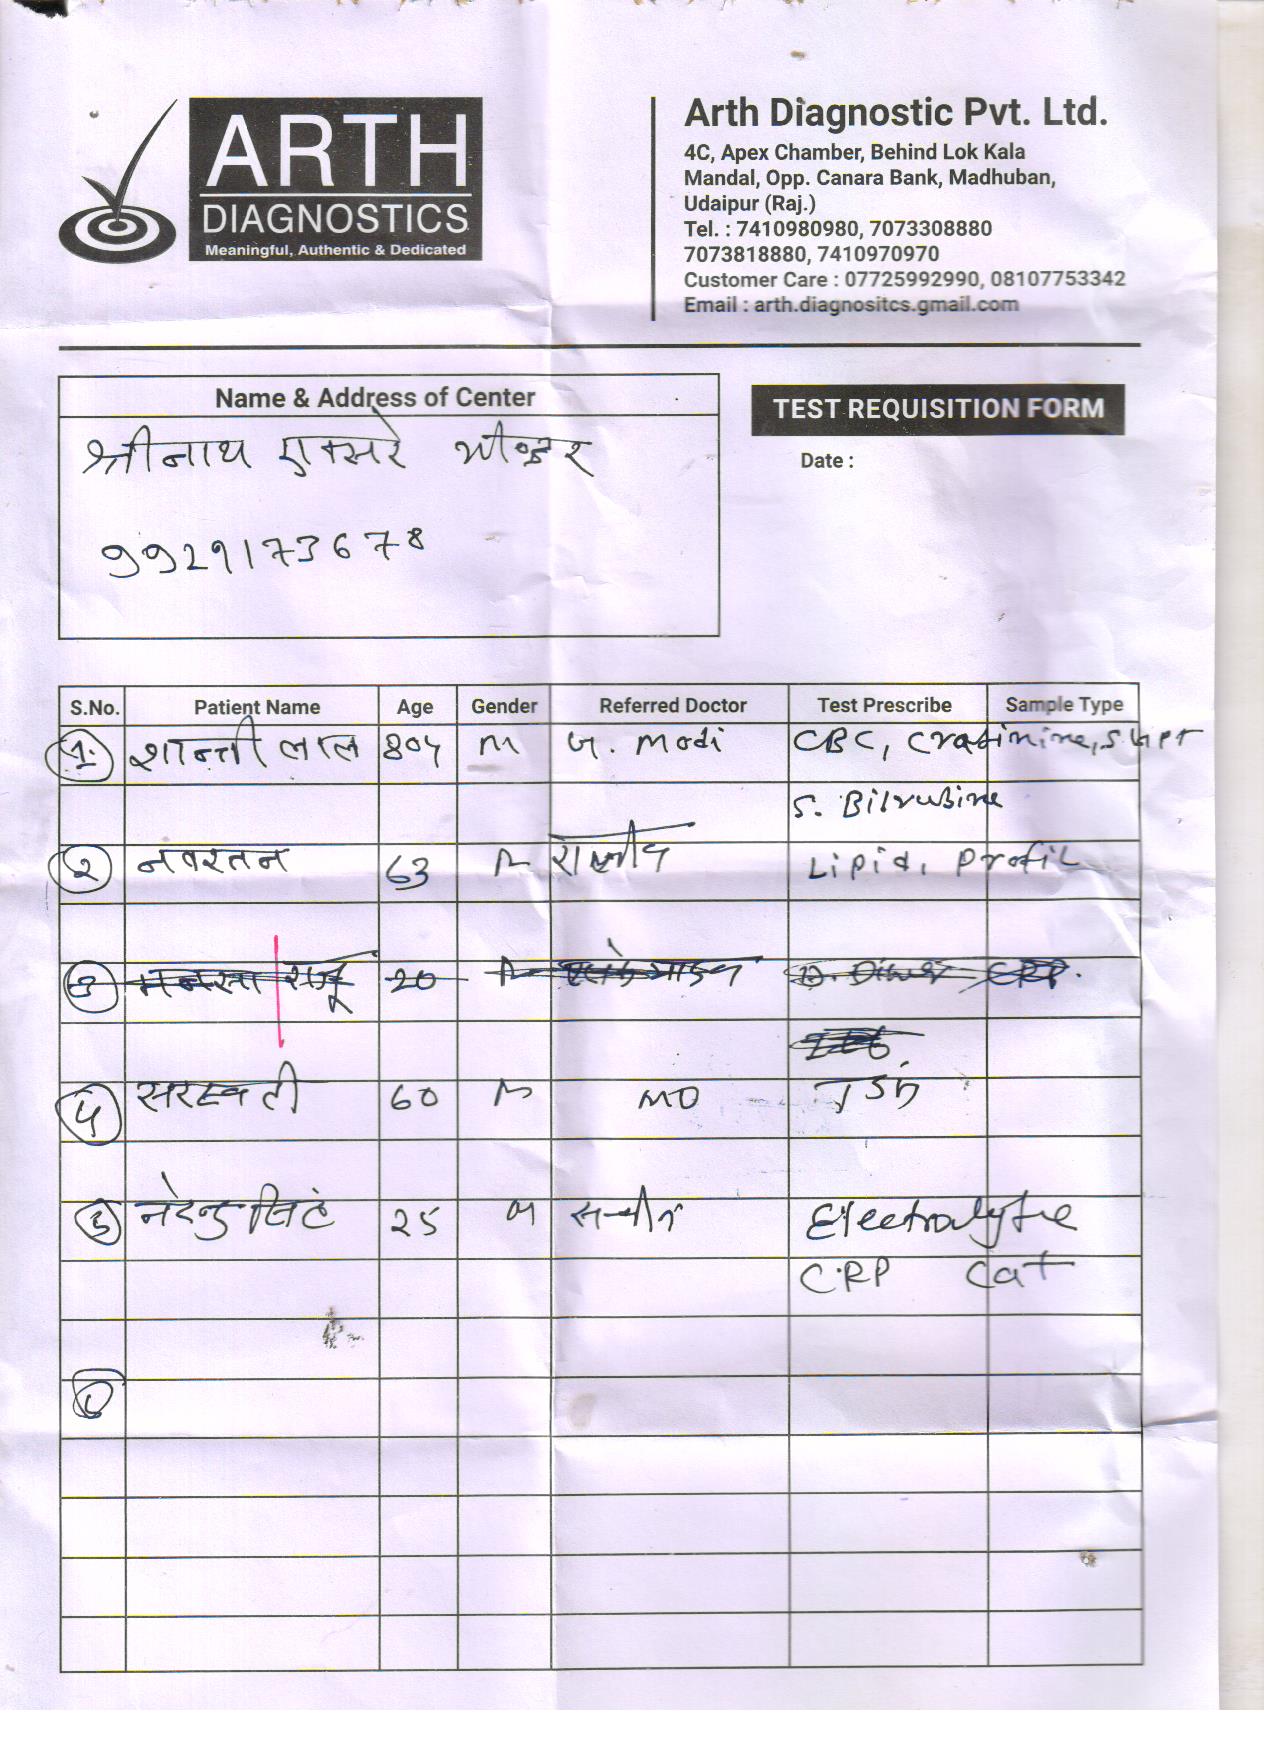 ARTH
DIAGNOSTICS
Meaningful, Authentic & Dedicated
Arth Diagnostic Pvt. Ltd.
4C, Apex Chamber, Behind Lok Kala
Mandal, Opp. Canara Bank, Madhuban,
Udaipur (Raj.)
Tel. : 7410980980, 7073308880
7073818880, 7410970970
Customer Care : 07725992990, 08107753342
Email : arth.diagnositcs.gmail.com
Name & Address of Center
श्रीनाथ एक्सरे भीण्डर
9929173678
TEST REQUISITION FORM
Date :
S.No. Patient Name Age Gender Referred Doctor Test Prescribe Sample Type
1. शान्ती लाल 80y m G. Modi CBC, Cratinine, S.GPT
S. Bilrubine
२ नवरतन 63 M Lipid. Profil
3 20 M CRP.
४ सरस्वती 60 M MO TSh
5 नरेन्द्र सिंह 25 M Electrolyte
CRP Cat